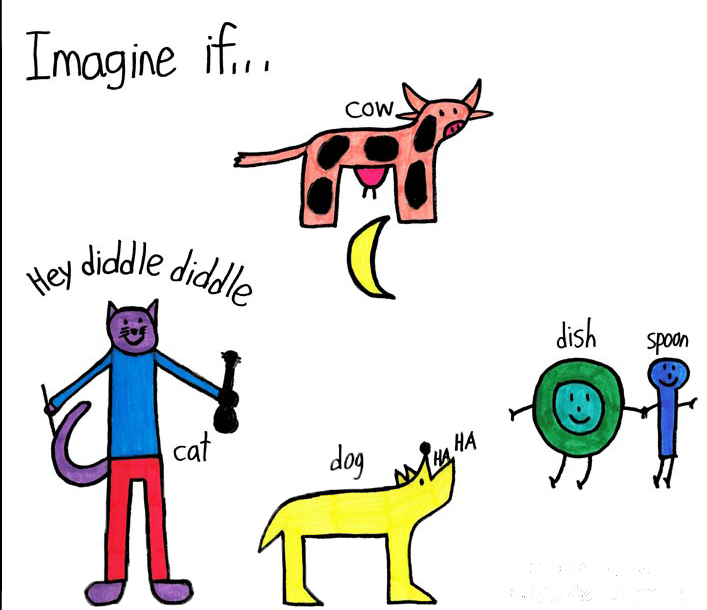 Imagine if...
cow
Hey diddle diddle
cat
dog
HA HA
dish
spoon